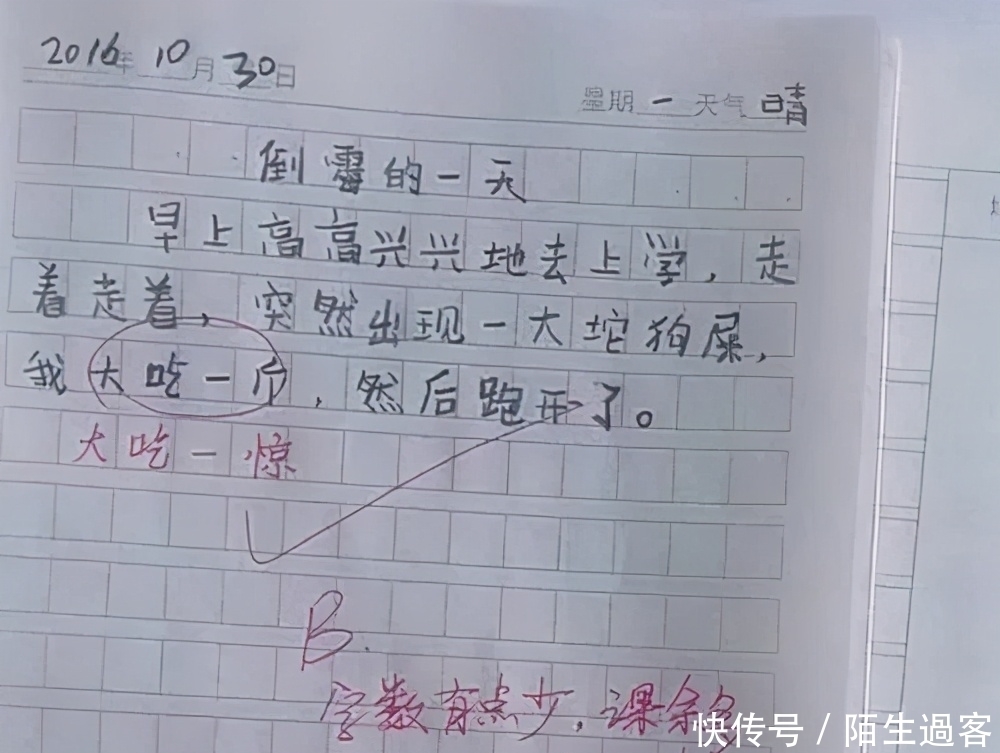 2016年10月30日
星期一天气晴
倒霉的一天
早上高高兴兴地去上学，走
着走着，突然出现一大坨狗屎，
我大吃一斤，然后跑开了。
大吃一惊
B.
字数有点少，课余
快传号 / 陌生過客